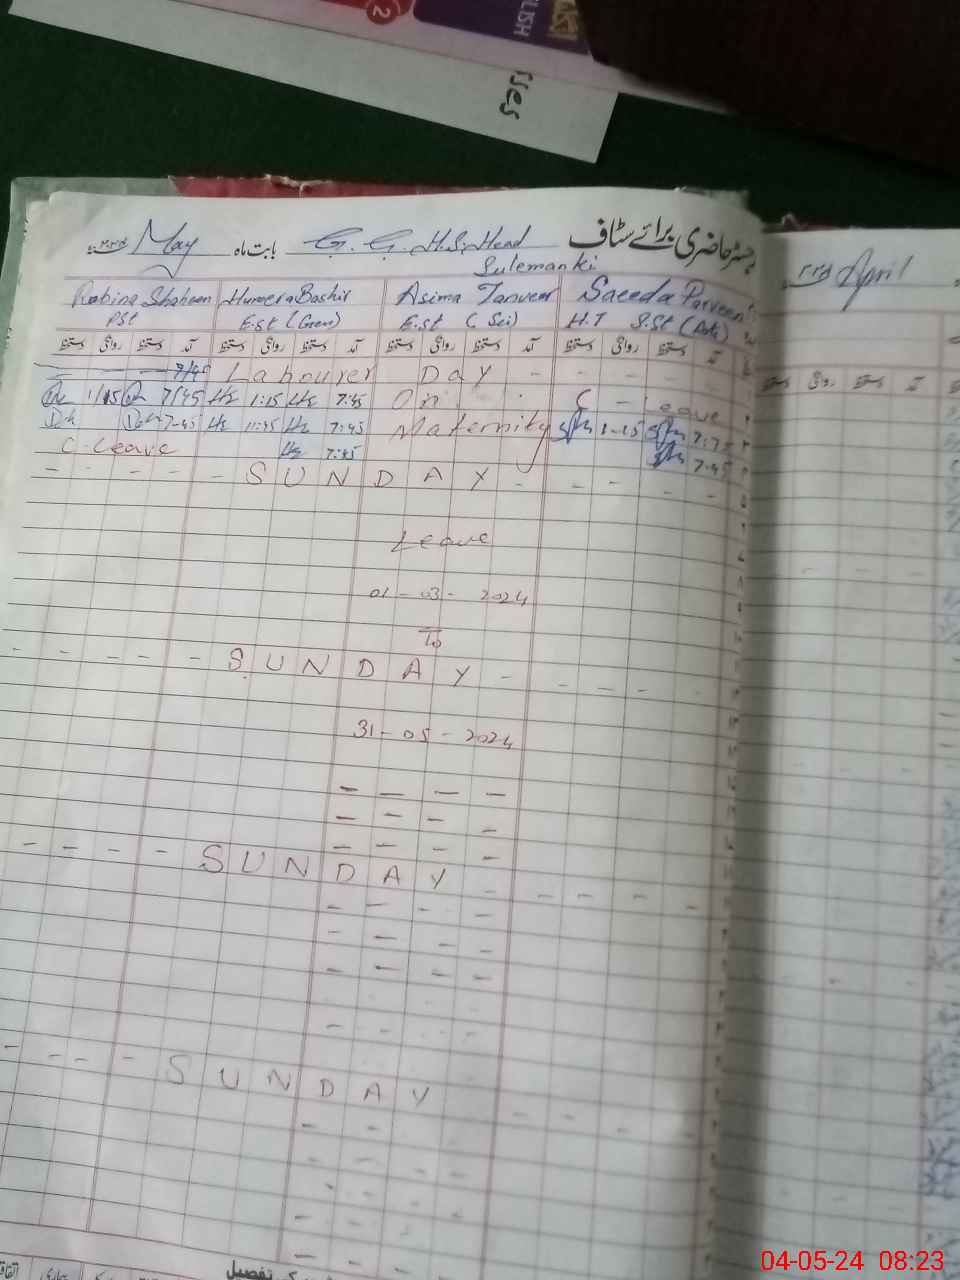 2
ENGLISH
sses
رجسٹر حاضری برائے سٹاف G. G. H.S. Head بابت ماہ May
Sulemanki
April
Saeeda Parveen
H.T S.St (Arts)
Asima Tanveer
E.st ( Sci)
Humera Bashir
E.st (Gen)
Rubina Shaheen
PSt
آمد دستخط روانگی دستخط آمد دستخط روانگی دستخط آمد دستخط روانگی دستخط آمد دستخط روانگی دستخط
- - - 7/45 Labourer Day - - - - -
1/15 7/45 Hs 1:15 Hs 7:45 On C - Leave
7-45 Hs 11:45 Hs 7:45 Maternity 1-15 7:45
C-Leave Hs 7:45 7:45
- - - - - S U N D A Y - - - - -
Leave
01-03-2024
To
- - - - - S U N D A Y - - - - -
31-05-2024
- - - -
- - - -
- - - -
- - - - S U N D A Y - - - - -
- - - -
- - - -
- - - -
- - - -
- - - - S U N D A Y - - - -
تفصیل
04-05-24 08:23